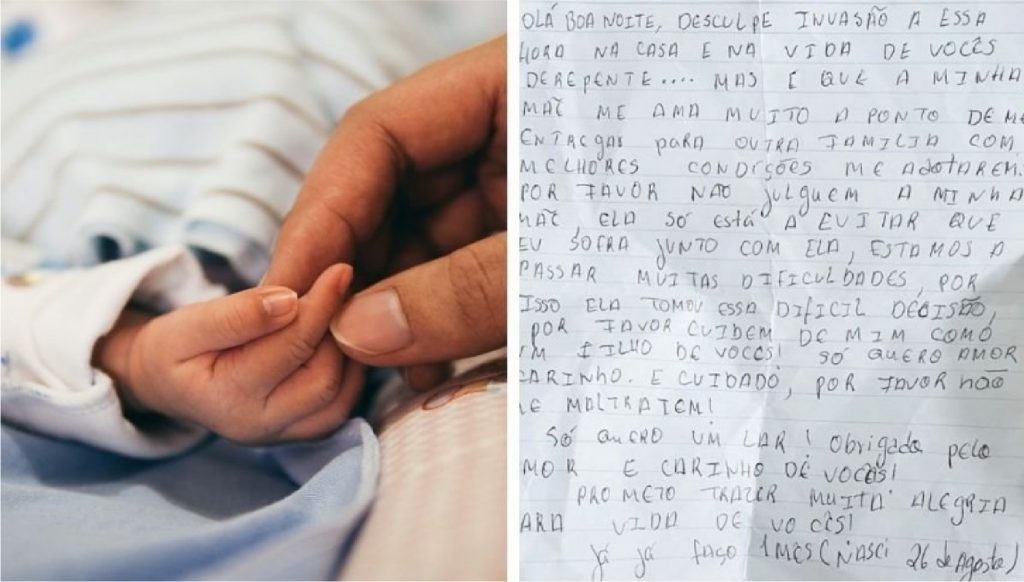 OLÁ BOA NOITE, DESCULPE INVASÃO A ESSA
HORA NA CASA E NA VIDA DE VOCÊS
DEREPENTE.... MAS É QUE A MINHA
MÃE ME AMA MUITO A PONTO DE ME
ENTREGAR PARA OUTRA FAMILIA COM
MELHORES CONDIÇÕES ME ADOTAREM.
POR FAVOR NÃO JULGUEM A MINHA
MÃE, ELA SÓ ESTÁ A EVITAR QUE
EU SOFRA JUNTO COM ELA, ESTAMOS A
PASSAR MUITAS DIFICULDADES, POR
ISSO ELA TOMOU ESSA DIFICIL DECISÃO,
POR FAVOR CUIDEM DE MIM COMO
UM FILHO DE VOCES! SÓ QUERO AMOR
CARINHO. E CUIDADO, POR FAVOR NÃO
ME MALTRATEM!
SÓ QUERO UM LAR! Obrigada pelo
MOR E CARINHO DE VOCÊS!
PROMETO TRAZER MUITA ALEGRIA
ARA VIDA DE VOCÊS!
Já já faço 1 MES (NASCI 26 de Agosto)